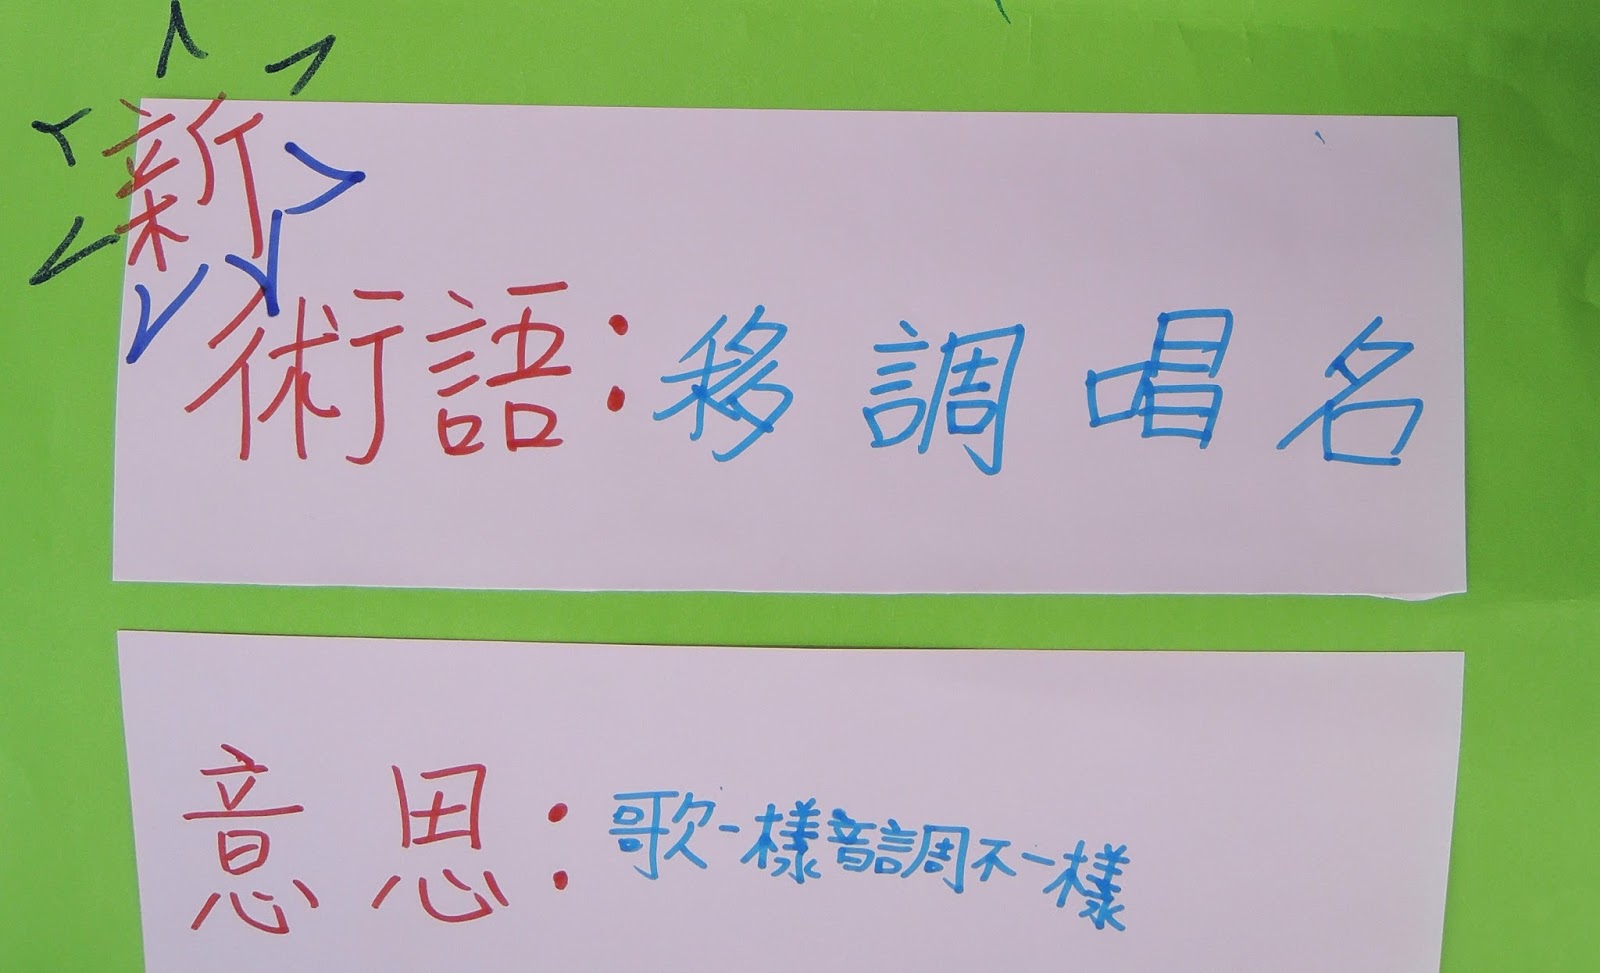 新
術語:移調唱名
意思:歌一樣音調不一樣